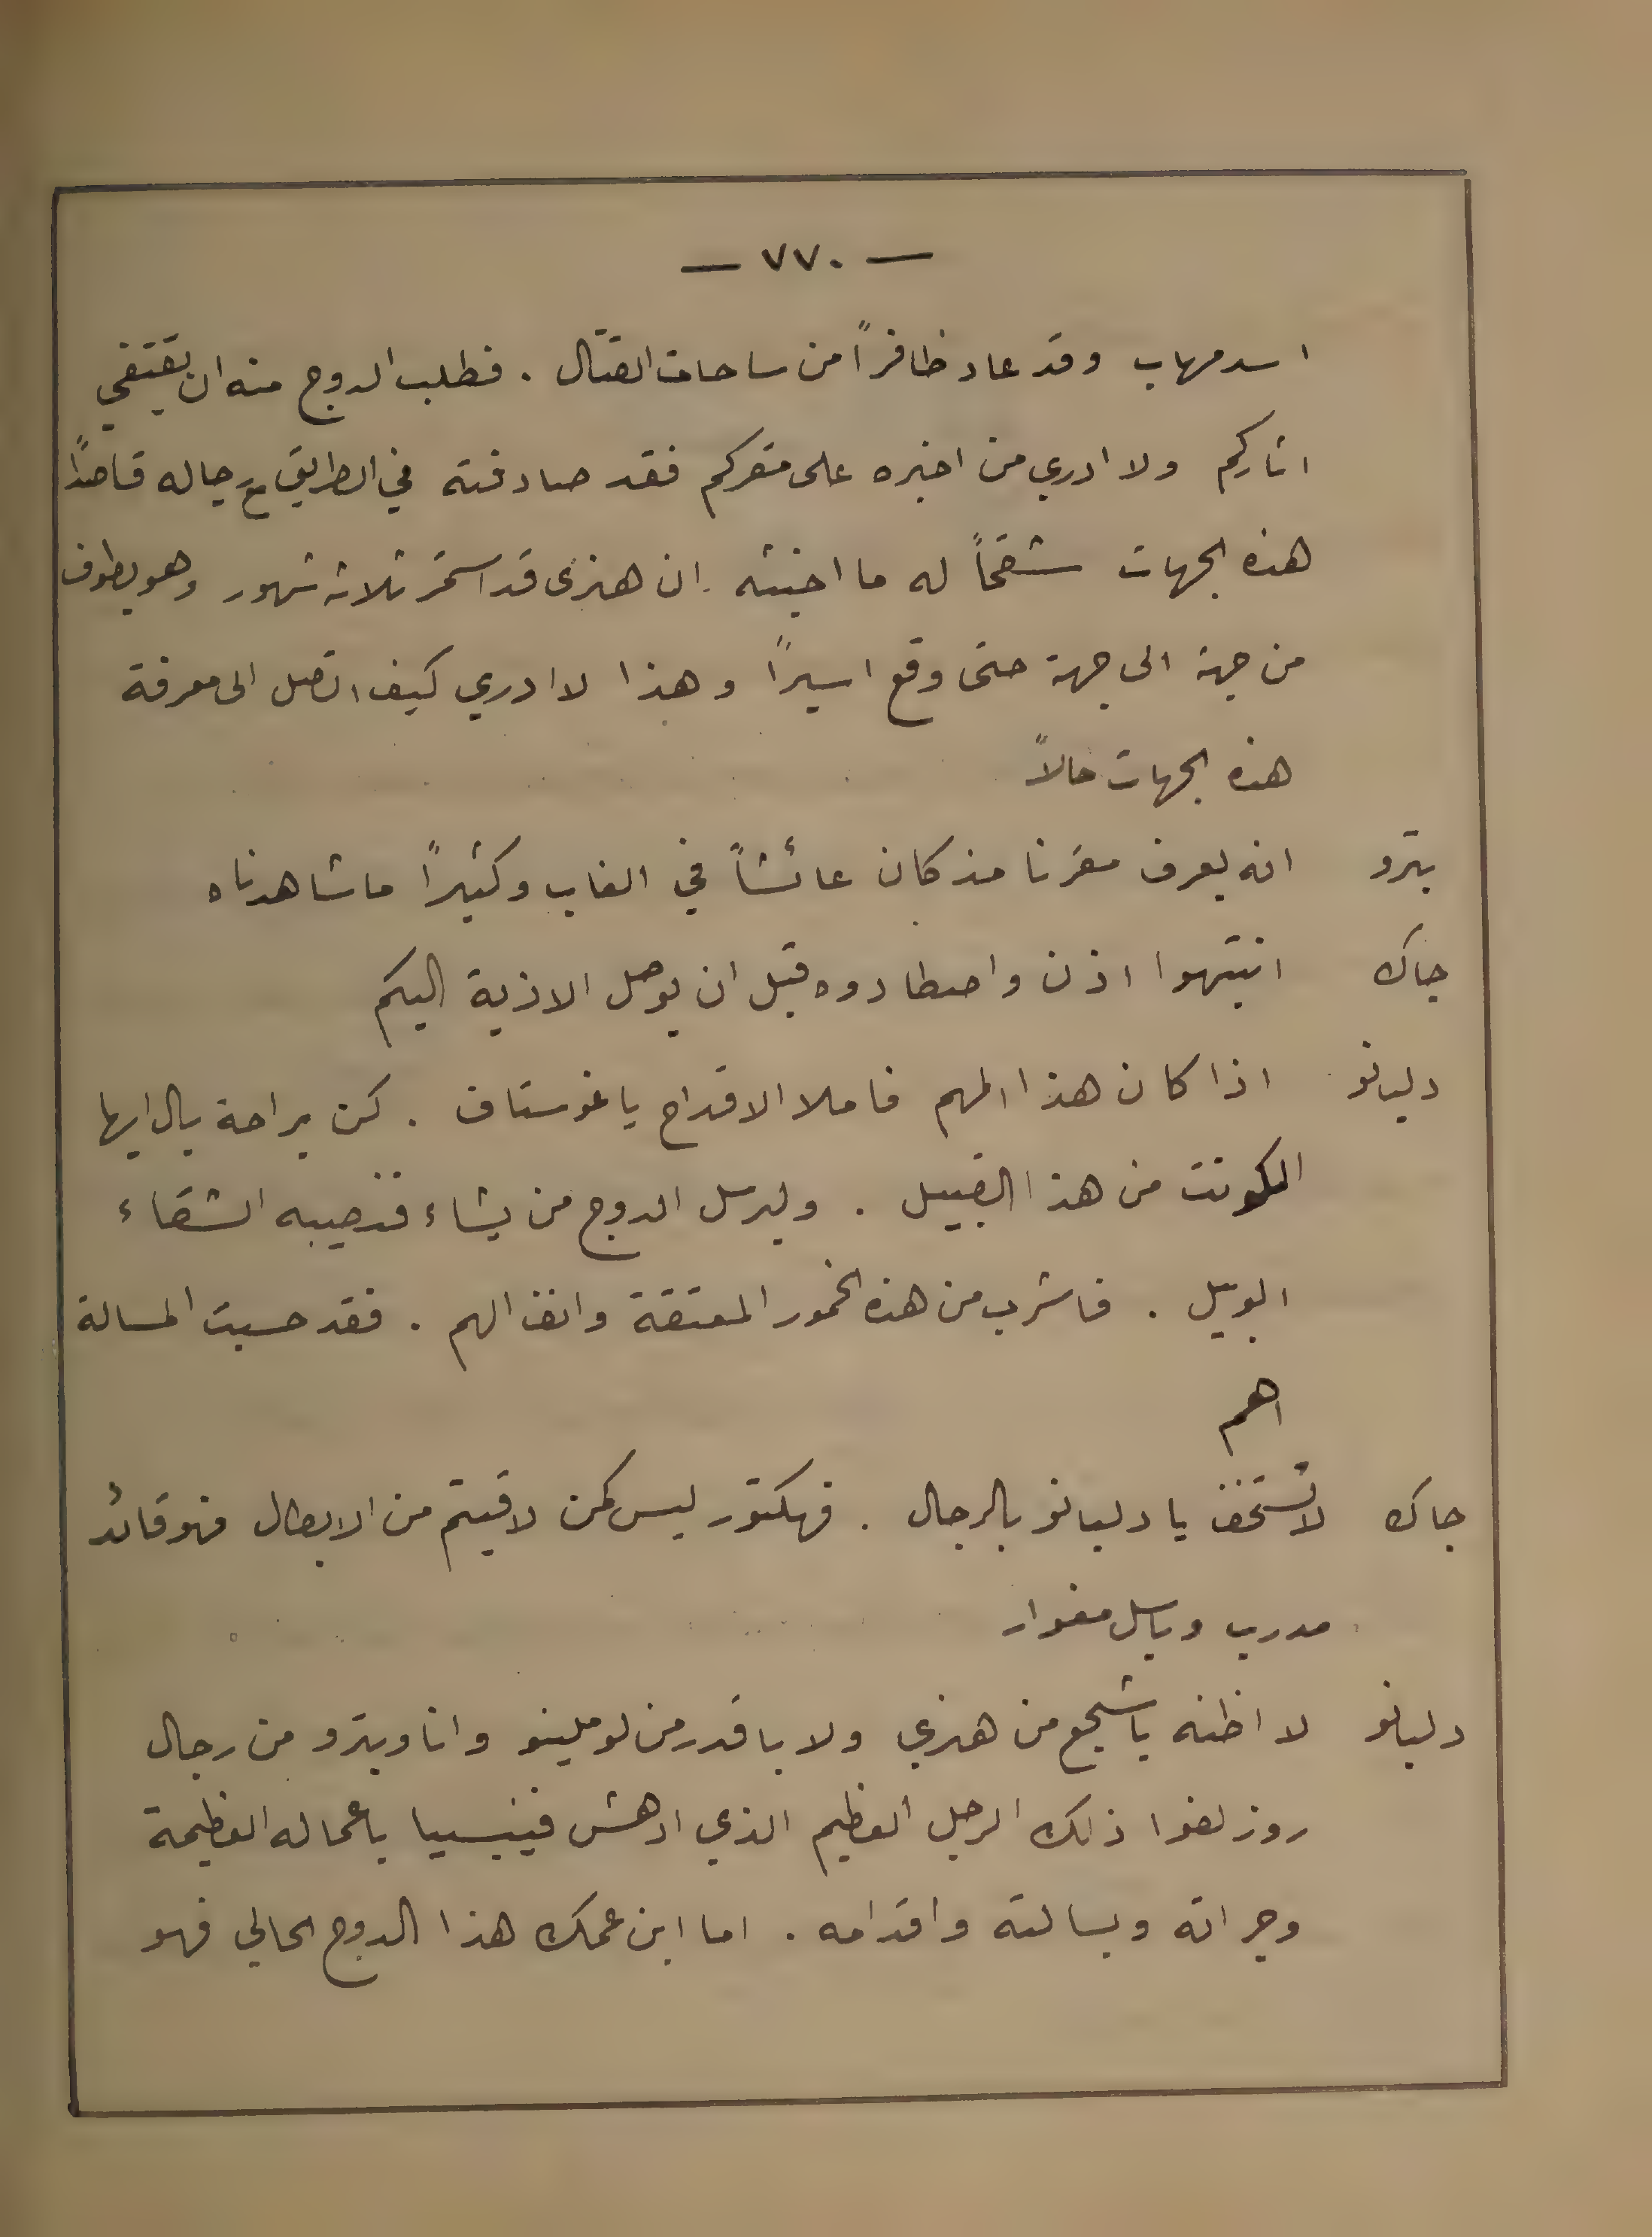 — ٧٧٠ —
اسد مهاب وقد عاد ظافراً من ساحات القتال . فطلب الدوج منه ان يقتفي
اثاركم ولا ادري من اخبره على مقركم فقد صادفته في الطريق مع رجاله قاصداً
هذه الجهات شقحاً له ما اخبثه . ان هنري قد استمر ثلاثة شهور وهو يطوف
من جهة الى جهة حتى وقع اسيراً وهذا لا ادري كيف اتصل الى معرفة
هذه الجهات حالاً
بترو انه يعرف مقرنا مذ كان عائشاً في الغاب وكثيراً ما شاهدناه
جاك انتبهوا اذن واصطادوه قبل ان يوصل الاذية اليكم
دليانو اذا كان هذا المهم فاملا الاقداح يا غوستاف . كن براحة بال ايها
الكونت من هذا القبيل . وليرسل الدوج من يشاء فنصيبه الشقاء
الوبيل . فاشرب من هذه الخمور المعتقة وانف الهم . فقد حسبت المسالة
اهم
جاك لا تستخف يا دليانو بالرجال . فهكتور ليس كمن لاقيتم من الابطال فهو قائد
مدرب وباسل مغوار
دليانو لا اظنه باشجع من هنري ولا باقدر من لوملينو وانا وبترو من رجال
روزلفوا ذلك الرجل العظيم الذي ادهش فينيسيا باعماله العظيمة
وجراته وبسالته واقدامه . اما ابن عمك هذا الدوج الحالي فهو